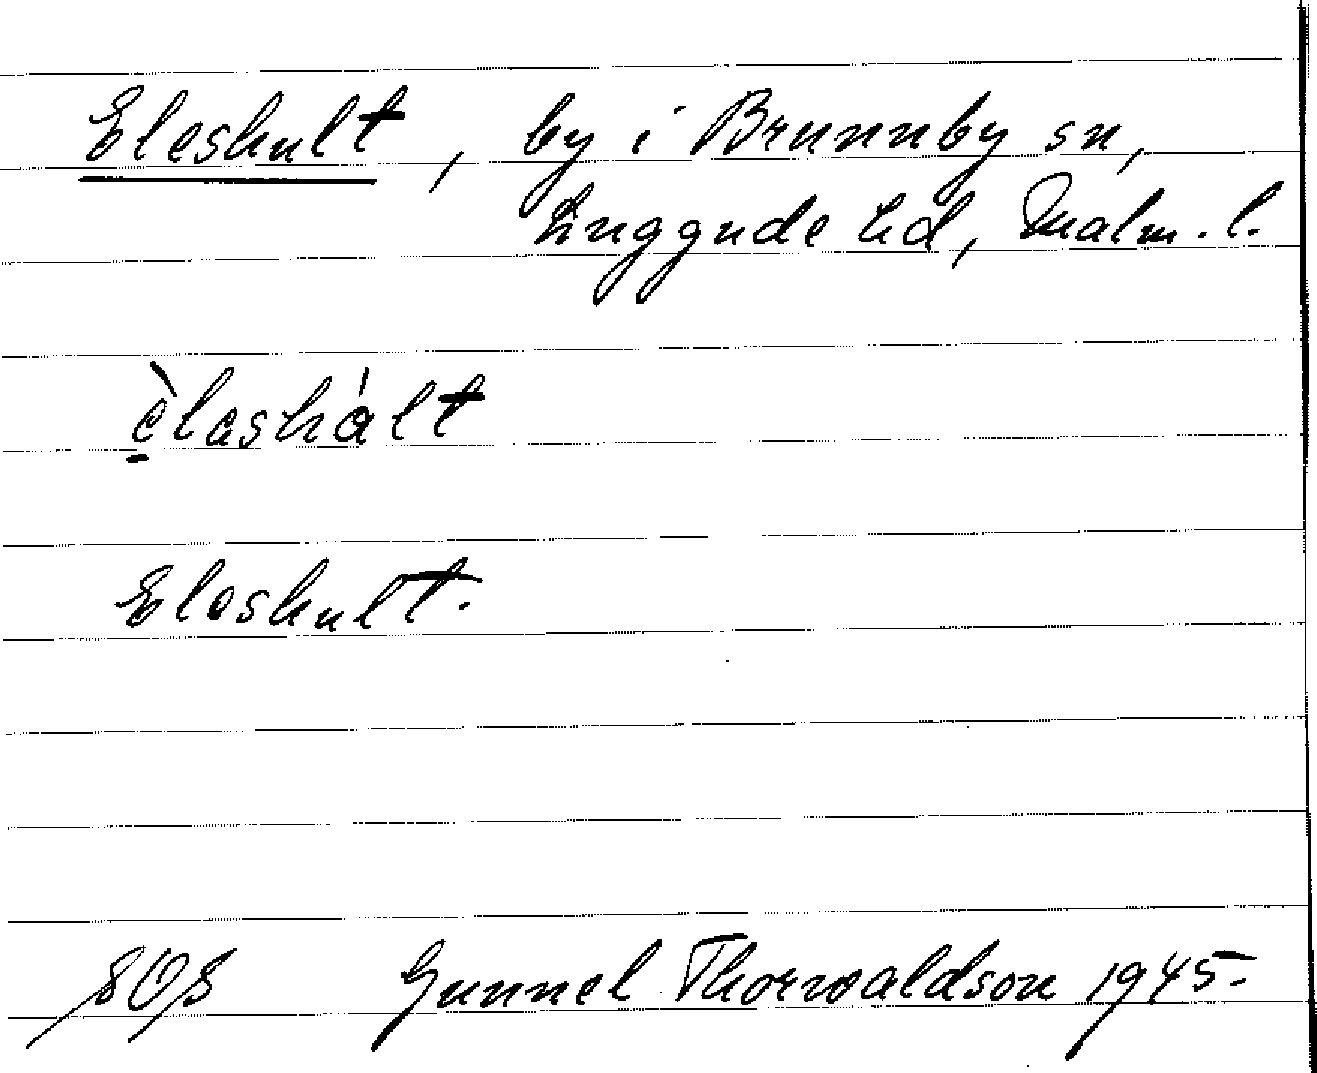 Eleshult, by i Brunnby sn,
Luggude hd, Malm. l.
èlashált
Eleshult.
SOS Gunnel Thorwaldson 1945.